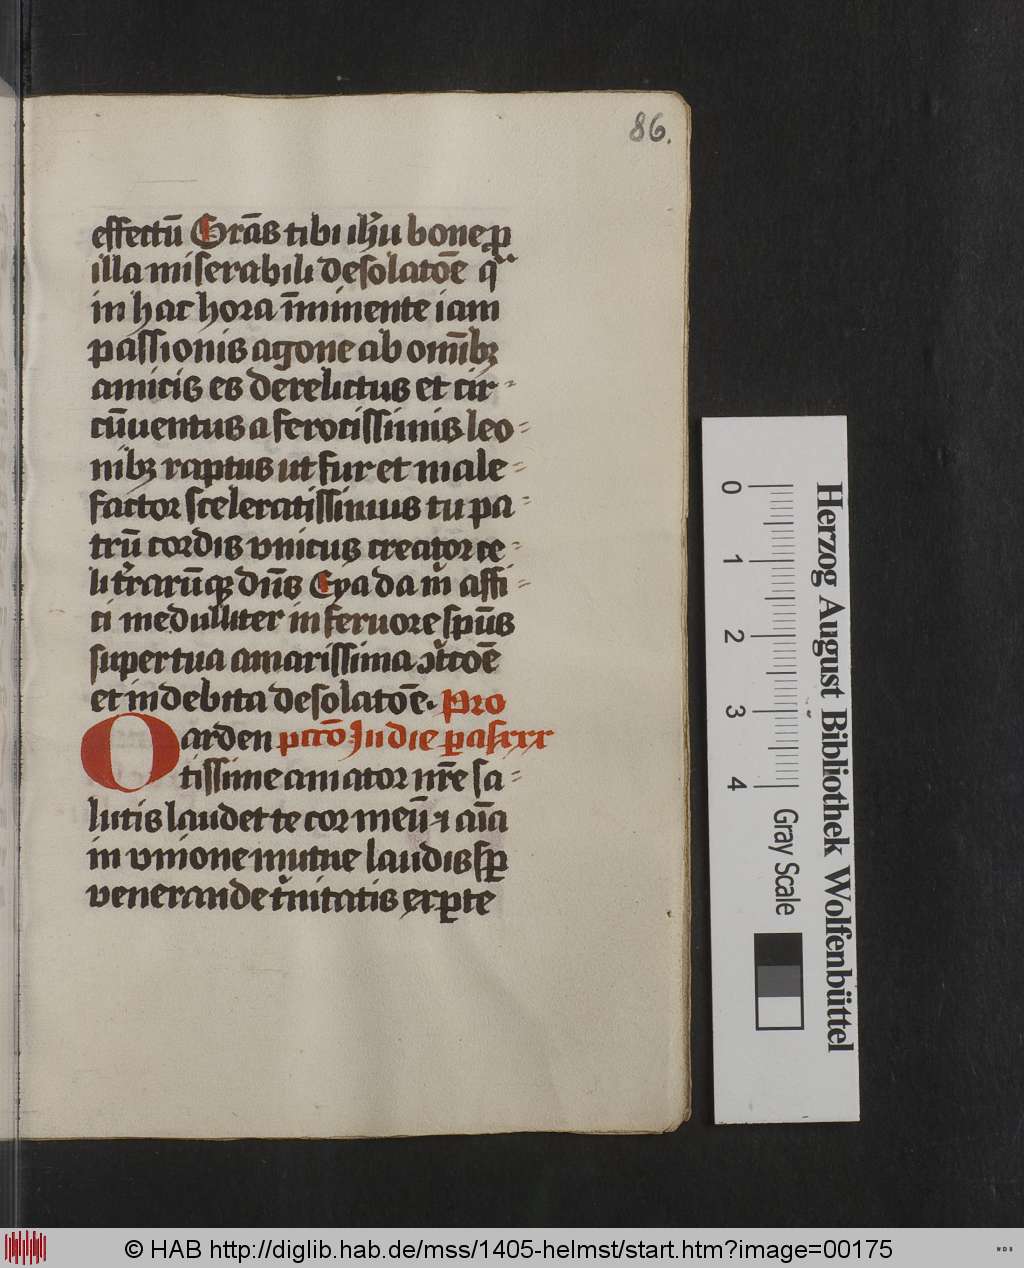 86.
effectū Grās tibi ihu bone p
illa miserabili desolatōe q
in hac hora īminente iam
passionis agone ab omībꝫ
amicis es derelictus et cir=
cūuentus a ferocissimis leo=
nibꝫ raptus ut fur et male=
factor sceleratissimus tu pa=
trū cordis vnicus creator ce=
li trarūqꝫ dn̄s Eya da m affi=
ci medulliter in feruore spūs
super tua amarissima ꝯtcoē
et indebita desolatōe. Pro
O arden pccō In die pasxxx
tissime amator nr̄e sa=
lutis laudet te cor meū ⁊ aīa
in vnione mutue laudis sp
venerande tnitatis exꝑte
0
1
2
3
4
Gray Scale
Herzog August Bibliothek Wolfenbüttel
© HAB http://diglib.hab.de/mss/1405-helmst/start.htm?image=00175